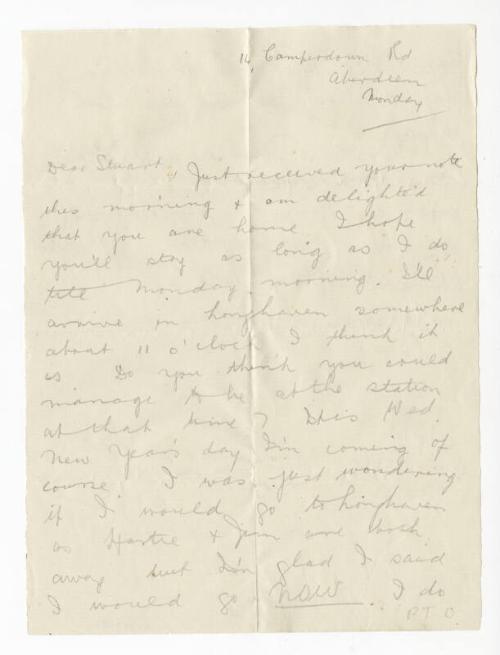 14, Camperdown Rd
Aberdeen
Monday
Dear Stuart,
Just received your note
this morning & am delighte'd
that you are home I hope
you'll stay as long as I do,
till Monday morning. I'll
arrive in Longhaven somewhere
about 11 o'clock I think it
is Do you think you could
manage to be at the station
at that time? It is Wed.
New Year's day I'm coming of
course. I was just wondering
if I would go to Longhaven
as Hantie & Jim are both
away but I'm glad I said
I would go NOW. I do
P.T.O.